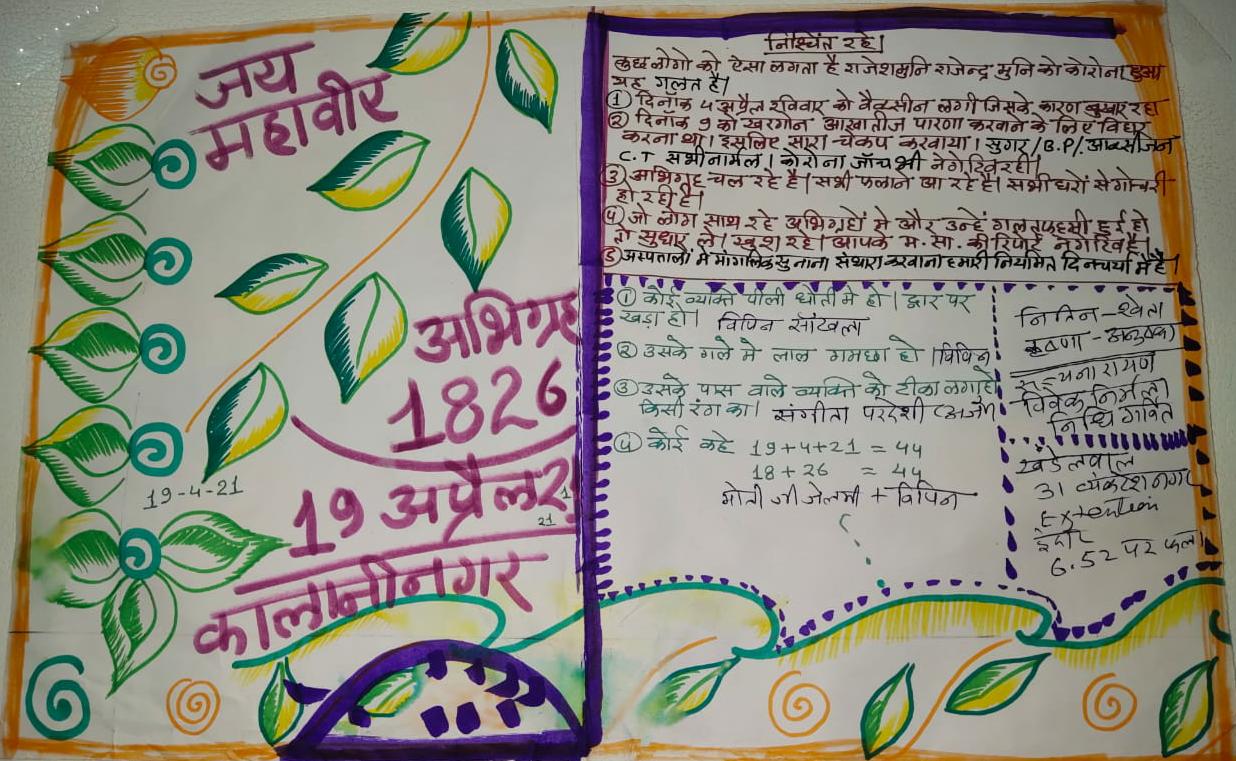 जय
महावीर
अभिग्रह
1826
19-4-21
19 अप्रैल
21
कालानीनगर
निश्चिंत रहे।
कुछ लोगो को ऐसा लगता है राजेशमुनि राजेन्द्र मुनि को कोरोना हुआ
यह गलत है।
① दिनांक 4 अप्रैल रविवार को वैक्सीन लगी जिसके कारण बुखार रहा
② दिनांक 9 को खरगोन आखातीज पारणा करवाने के लिए विहार
करना था। इसलिए सारा चेकप करवाया। सुगर/B.P/आक्सीजन
C.T सभी नार्मल। कोरोना जाँच भी नेगेटिव रही।
③ अभिग्रह चल रहे है। सभी फलाने आ रहे है। सभी घरों से गोचरी
हो रही है।
④ जो लोग साथ रहे अभिग्रहो मे और उन्हें गलतफहमी हुई हो
तो सुधार ले। खुश रहे। आपके म. सा. की रिपोर्ट नेगेटिव है।
⑤ अस्पतालो मे मांगलिक सुनाना संथारा करवाना हमारी नियमित दिनचर्या मे है।
① कोई व्यक्ति पीली धोती मे हो। द्वार पर
खडा हो। विपिन सांवला
② उसके गले मे लाल गमछा हो। विपिन
③ उसके पास वाले व्यक्ति को टीका लगा हो
किसी रंग का। संगीता परदेशी
④ कोई कहे 19+4+21 = 44
18+26 = 44
मोती जी जेलमी + विपिन
नितिन - श्वेता
विवेक निर्मला
निधि गर्वित
खंडेलवाल
31 व्यंकटेश नगर
Extention
इंदौर
6.52 पर फला